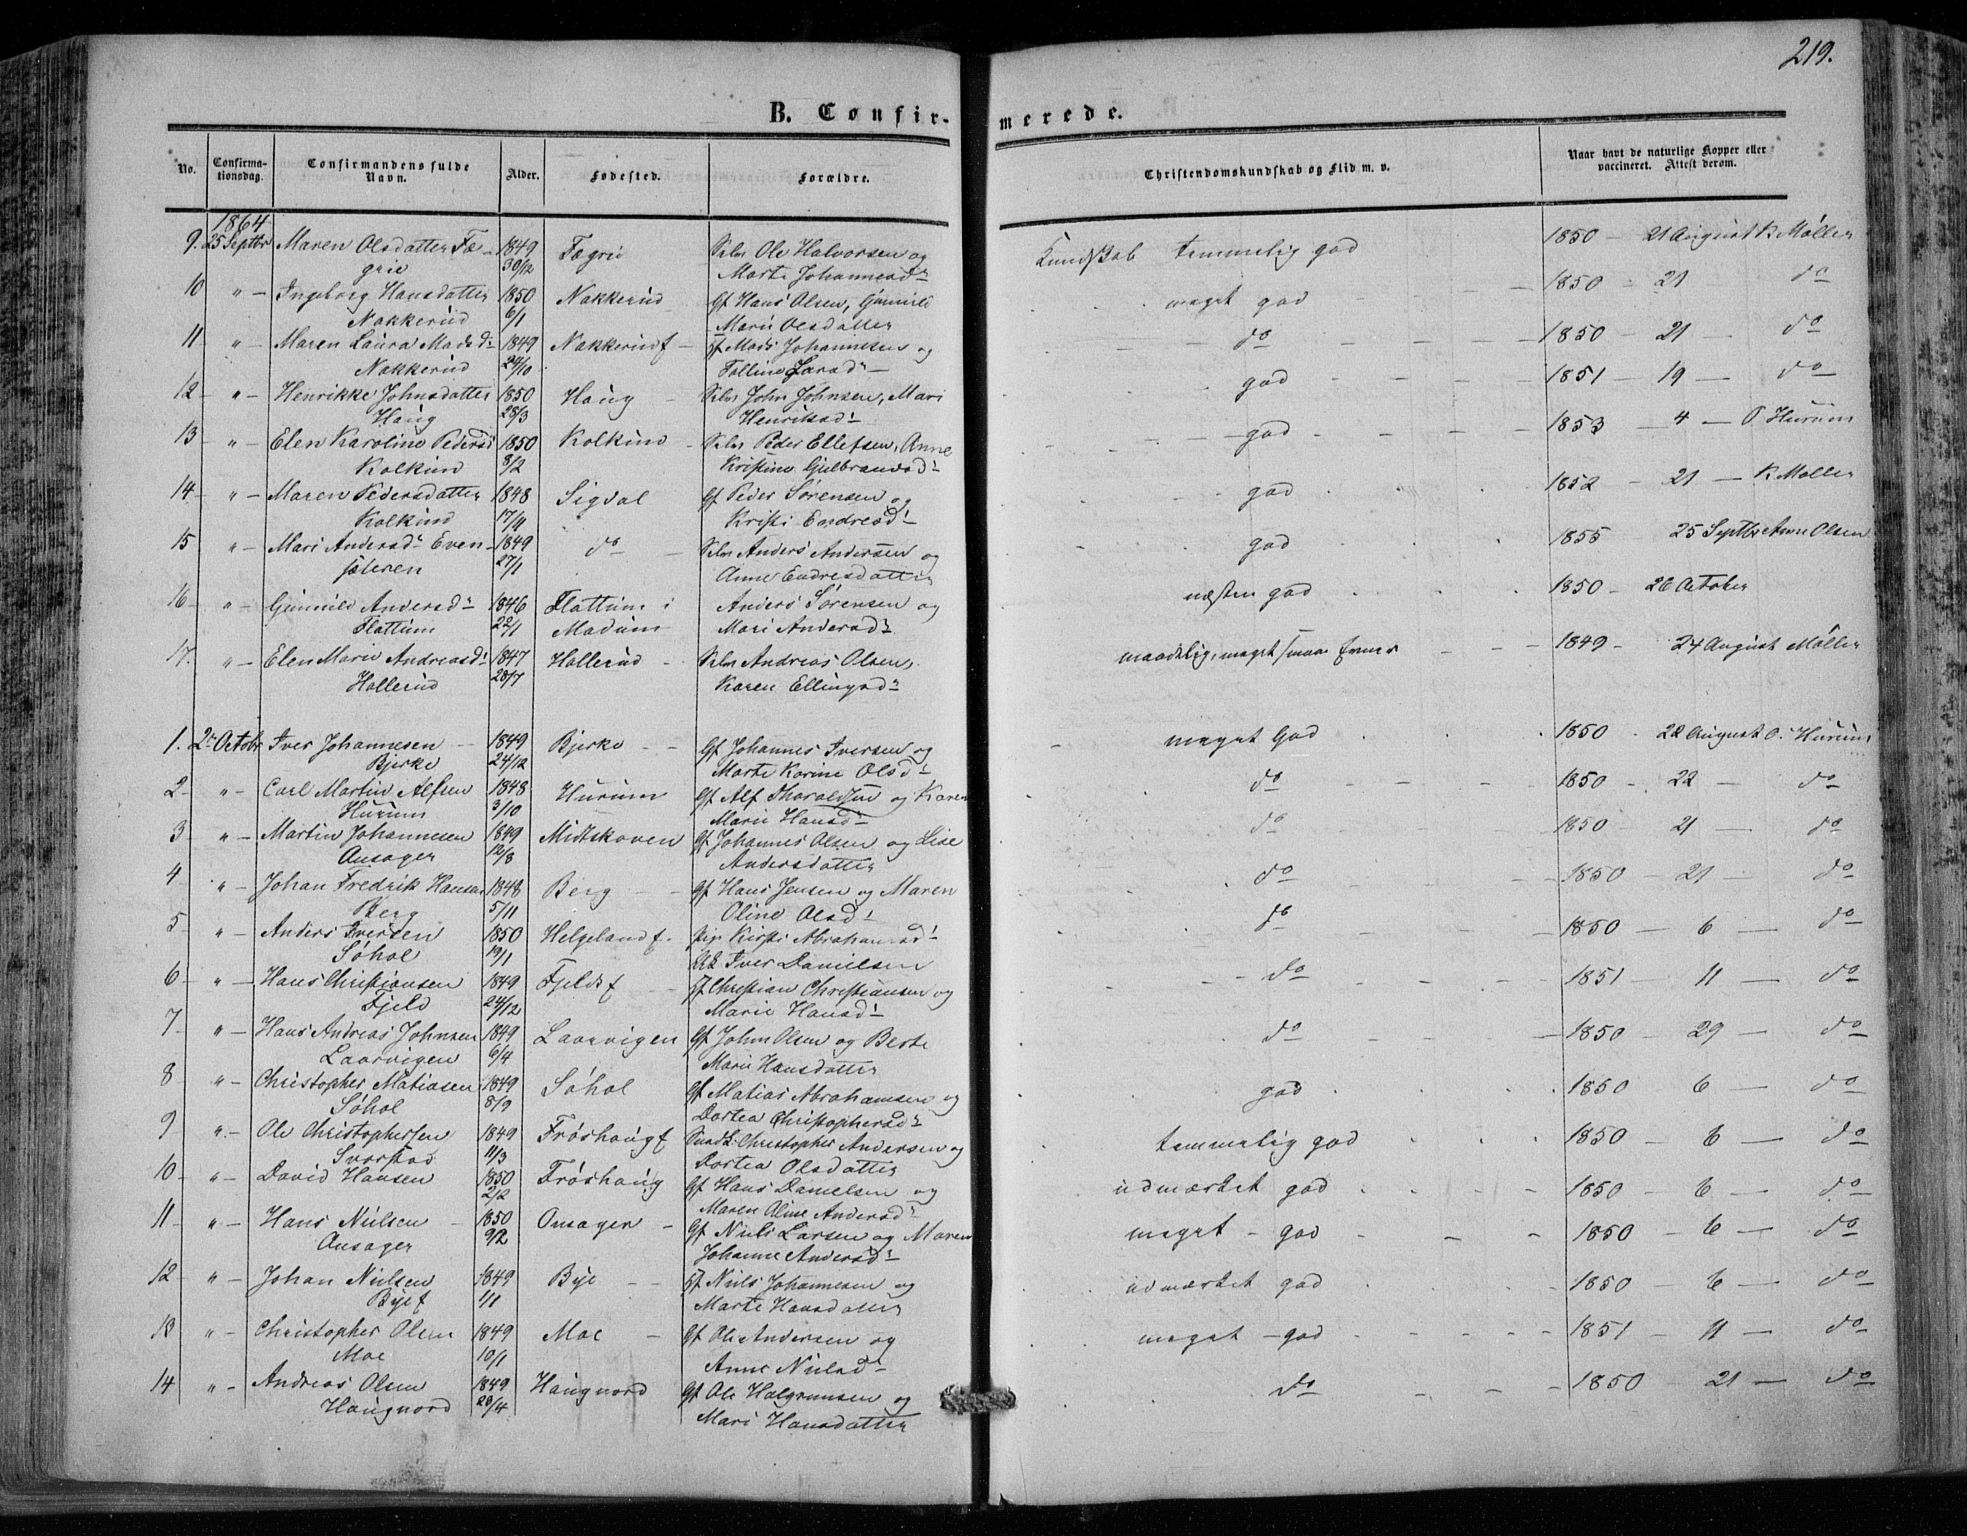 219.
B. Confir-merede.
No. Confirmationsdag. Confirmandens fulde Navn. Alder. Fødested. Forældre. Christendomskundskab og Flid m. v. Naar havt de naturlige Kopper eller vaccineret. Attest derom.
1864
9. 25 Septbr Maren Olsdatter Fæ- 1849 Fægrie Selv Ole Halvorsen og Kundskab temmelig god 1850 – 21 August K. Møller
grie 30/12 Marte Johannesd
10 " – Ingeborg Hansdatter 1850 Nakkerud Gf Hans Olsen, Gunnild meget god 1850 – 21 do
Nakkerud 6/1 Marie Olsdatter
11 " – Maren Laura Madsd 1849 Nakkerudf Jf Mads Johannesen og do 1850 – 21 – do
Nakkerud 24/10
12 – " – Henrikke Johnsdatter 1850 Haug Selv John Johnsen, Mari god 1851 – 19 – do
Haug 28/3 Henriksd
13 " – Elen Karoline Pedersd 1850 Kolkind Selv Peder Ellefsen, Anne god 1853 – 4 – O Hurum
Kolkind 8/2 Kristine Gulbransd
14 – " – Maren Pedersdatter 1848 Sigdal Gf Peder Sørensen og god 1852 – 21 – K. Møller
Kolkind 17/11 Kristi Endresd
15 " – Mari Andersd Even- 1849 do Selv Anders Andersen og god 1855 25 Septbr Olsen
sæteren 27/1 Anne Endresdatter
16 – " – Gunnild Andersd 1846 Flattum i Anders Sørensen og næsten god 1850 – 26 October
Flattum 22/1 Modum Mari Andersd
17. " – Elen Marie Andreasd 1847 Hollerud Selv Andreas Olsen, maadelig, meget smaa Evner 1849 – 24 August Møller
Hollerud 28/7 Karen Ellingsd
1. 2n Octobr Iver Johannesen 1849 Bjerke Gf Johannes Iversen og meget God 1850 22 August O. Hurum
Bjerke 24/12 Marte Karine Olsd
2 – " – Carl Martin Alfsen 1848 Hurum Gf Alf Thoraldsen og Karen do 1850 – 22 – do
Hurum 3/10 Marie Hansd
3 " – Martin Johannesen 1849 Midtskoven Gf Johannes Olsen og Lise do 1850 – 21 – do
Onsager 12/8 Andersdatter
4 " – Johan Fredrik Hansen 1848 Berg Gf Hans Jensen og Maren do 1850 – 21 – do
Berg 5/11 Oline Olsd
5 " Anders Iversen 1850 Helgelandf. pige Kirsti Abrahamsd do 1850 – 6 – do
Søhol 19/1 Iver Danielsen
6 – " – Hans Christiansen 1849 Fjeldf Jf Christian Christiansen og do 1851 – 11 – do
Fjeld 24/12 Marie Hansd
7 " – Hans Andreas Johnsen 1849 Laarvigen Gf John Olsen og Berte do 1850 – 29 – do
Laarvigen 6/4 Marie Hansdatter
8 " – Christopher Matiasen 1849 Søhol Gf Matias Abrahamsen og god 1850 – 6 – do
Søhol 8/9 Dortea Christophersd
9 " – Ole Christophersen 1849 Frøshaugf Christopher Andersen og temmelig god 1850 – 6 – do
Svarstad 11/3 Dortea Olsdatter
10 – " – David Hansen 1850 Frøshaug Gf Hans Danielsen og udmærket god 1850 – 6 – do
2/2 Maren Oline Andersd
11 – " – Hans Nielsen 1850 Onsager – Gf Niels Larsen og Maren meget – god 1850 – 6 – do
Onsager 9/2 Johanne Andersd
12 " – Johan Nielsen 1849 Bye Jf Niels Johannesen og udmærket god 1850 – 6 – do
Byef 1/1 Marte Hansdatter
13 " – Christopher Olsen 1849 Moe Gf Ole Andersen og meget – god 1851 – 11 – do
Moe 10/1 Anne Nielsd
14 " – Andreas Olsen 1849 Haugnord Gf Ole Halgrimsen og do 1850 – 21 – do
Haugnord 28/4 Mari Hansdatter